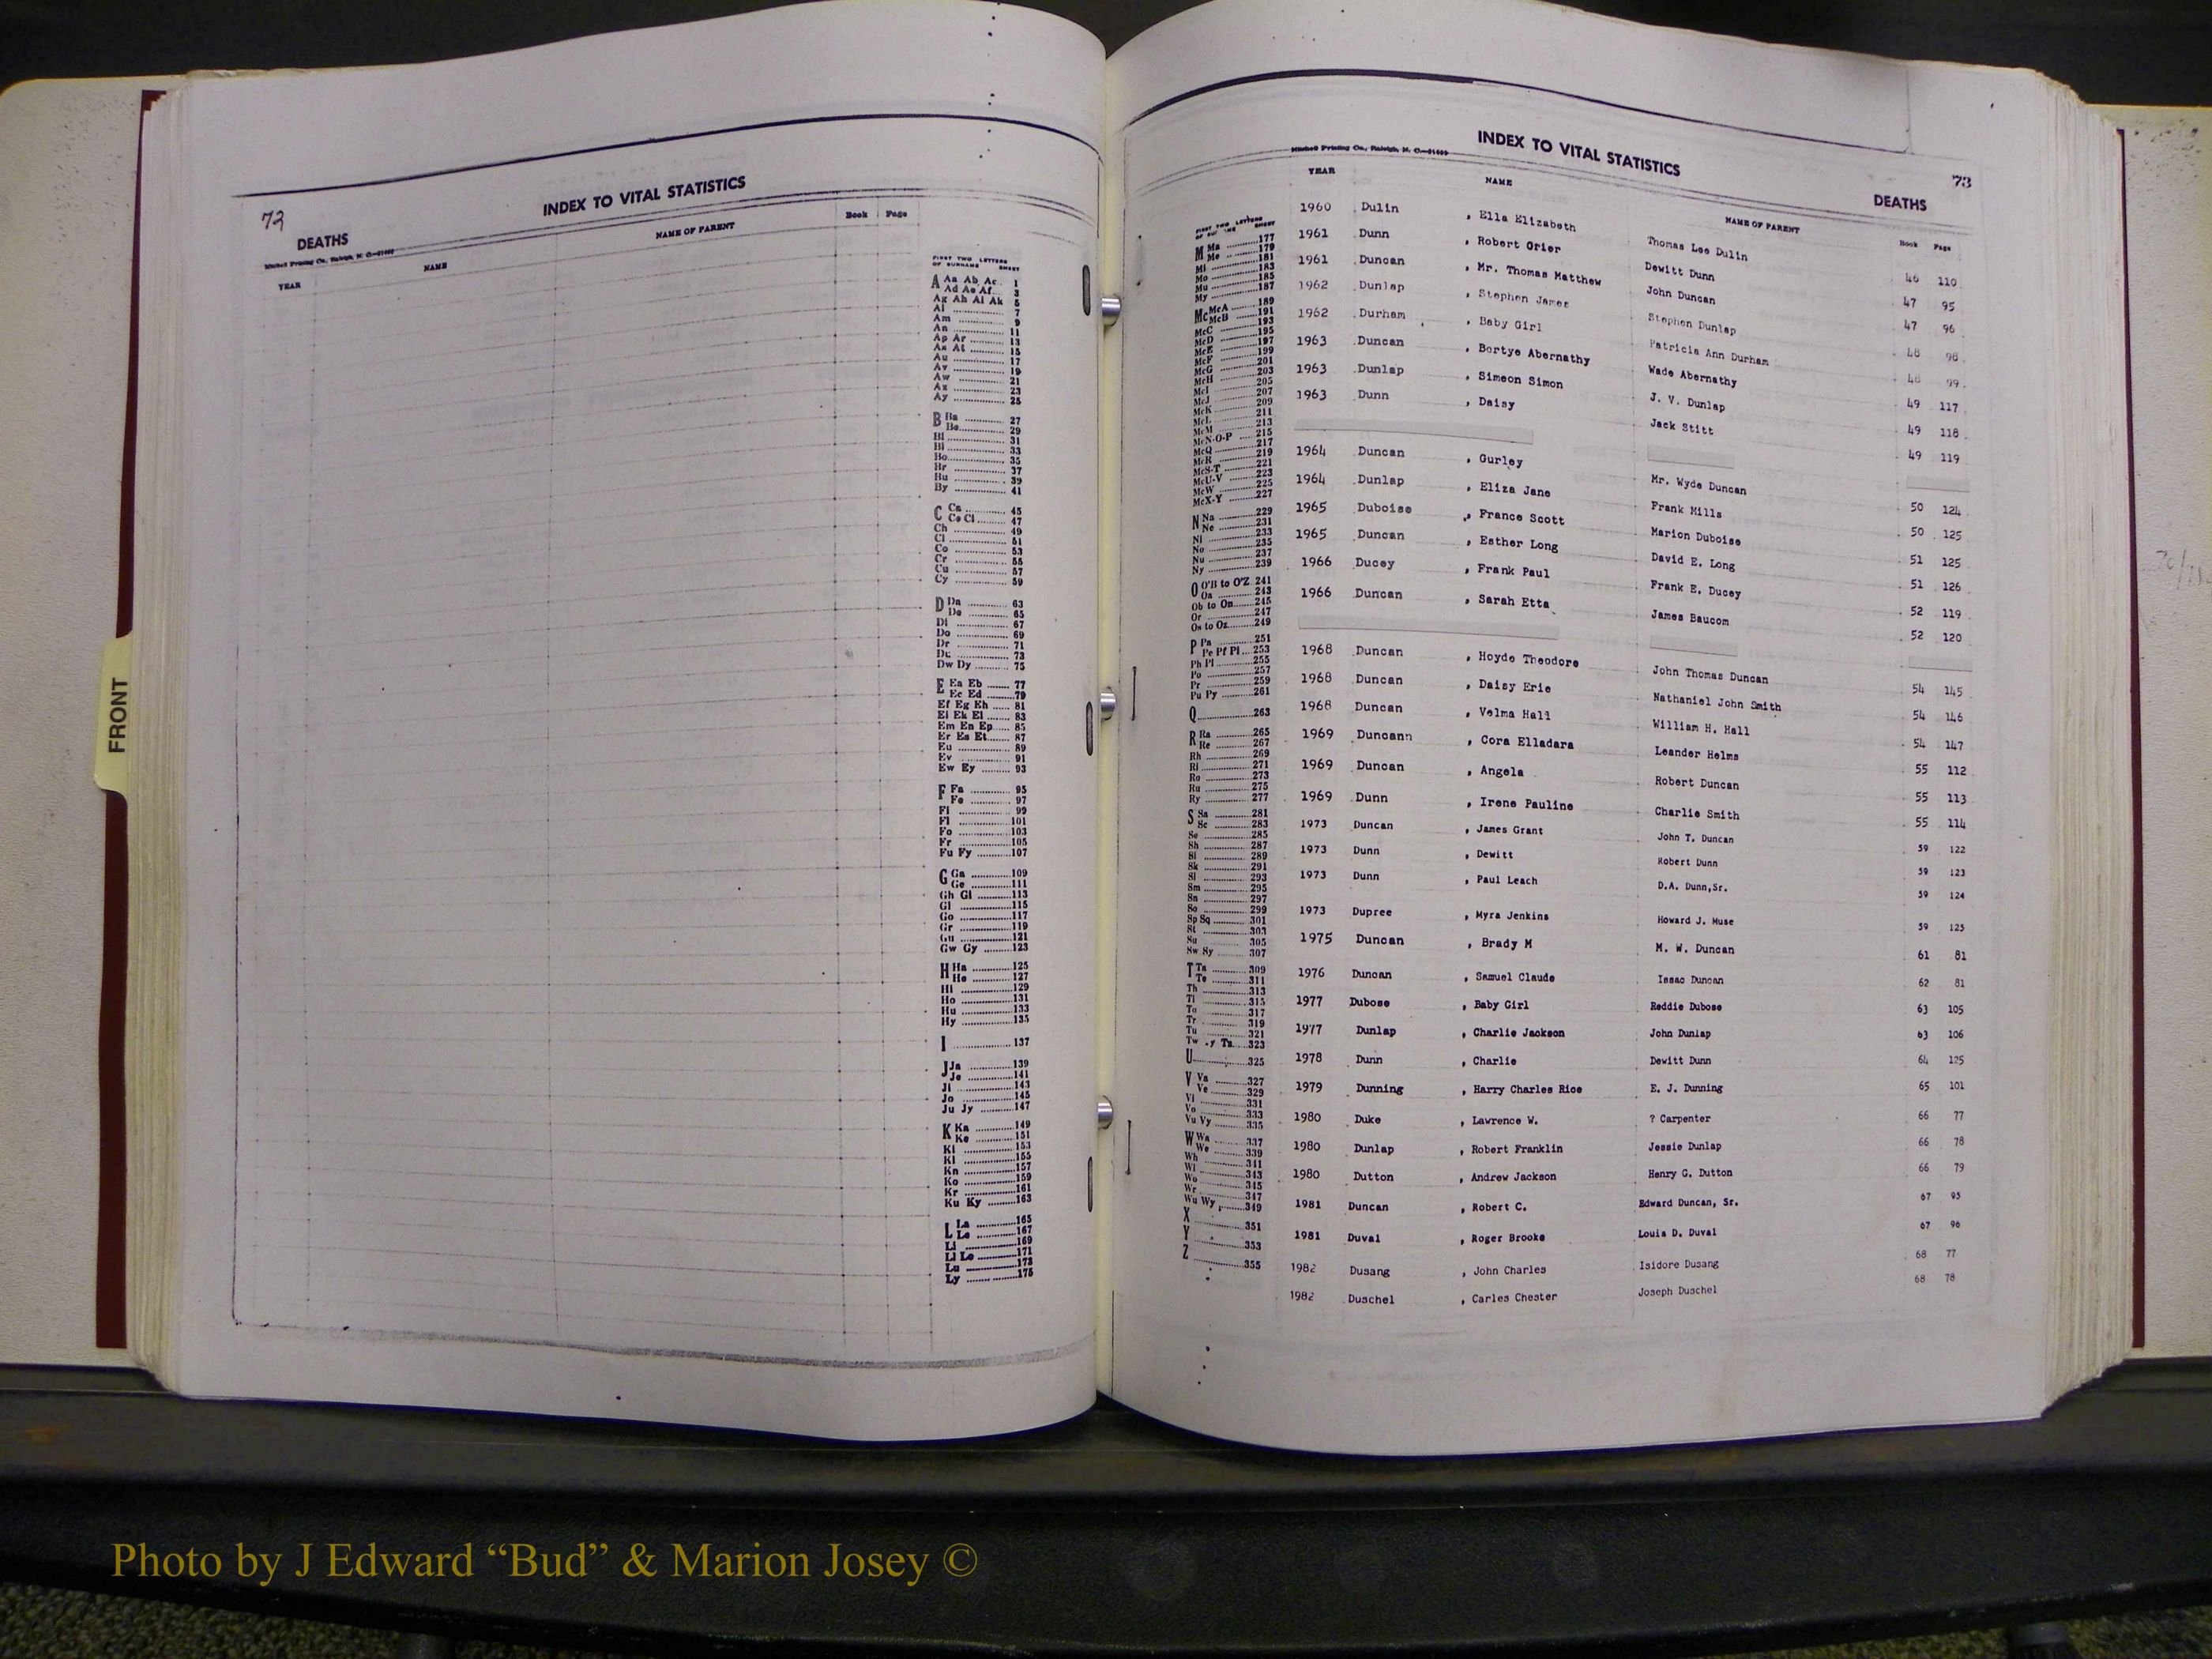 FRONT
73
INDEX TO VITAL STATISTICS
DEATHS
Mitchell Printing Co., Raleigh, N. C.
YEAR NAME NAME OF PARENT Book Page
FIRST TWO LETTERS
OF SURNAME SHEET
A Aa Ab Ac 1
Ad Ae Af 3
Ag Ah Ai Ak 5
Al 7
Am 9
An 11
Ap Ar 13
As At 15
Au 17
Av 19
Aw 21
Ax 23
Ay 25
B Ba 27
Be 29
Bi 31
Bl 33
Bo 35
Br 37
Bu 39
By 41
C Ca 45
Ce Ci 47
Ch 49
Cl 51
Co 53
Cr 55
Cu 57
Cy 59
D Da 63
De 65
Di 67
Do 69
Dr 71
Du 73
Dw Dy 75
E Ea Eb 77
Ec Ed 79
Ef Eg Eh 81
Ei Ek El 83
Em En Ep 85
Er Es Et 87
Eu 89
Ev 91
Ew Ey 93
F Fa 95
Fe 97
Fi 99
Fl 101
Fo 103
Fr 105
Fu Fy 107
G Ga 109
Ge 111
Gh Gi 113
Gl 115
Go 117
Gr 119
Gu 121
Gw Gy 123
H Ha 125
He 127
Hi 129
Ho 131
Hu 133
Hy 135
I 137
J Ja 139
Je 141
Ji 143
Jo 145
Ju Jy 147
K Ka 149
Ke 151
Ki 153
Kl 155
Kn 157
Ko 159
Kr 161
Ku Ky 163
L La 165
Le 167
Li 169
Ll Lo 171
Lu 173
Ly 175
INDEX TO VITAL STATISTICS
73
Mitchell Printing Co., Raleigh, N. C.
DEATHS
YEAR NAME NAME OF PARENT Book Page
M Ma 177
Me 179
Mi 181
Mo 183
Mu 185
My 187
Mc McA 189
McB 191
McC 193
McD 195
McE 197
McF 199
McG 201
McH 203
McI 205
McJ 207
McK 209
McL 211
McM 213
McN-O-P 215
McQ 217
McR 219
McS-T 221
McU-V 223
McW 225
McX-Y 227
N Na 229
Ne 231
Ni 233
No 235
Nu 237
Ny 239
O O'B to O'Z 241
Oa 243
Ob to On 245
Or 247
Os to Oz 249
P Pa 251
Pe Pf Pi 253
Ph Pl 255
Po 257
Pr 259
Pu Py 261
Q 263
R Ra 265
Re 267
Rh 269
Ri 271
Ro 273
Ru 275
Ry 277
S Sa 281
Sc 283
Se 285
Sh 287
Si 289
Sk 291
Sl 293
Sm 295
Sn 297
So 299
Sp Sq 301
St 303
Su 305
Sw Sy 307
T Ta 309
Te 311
Th 313
Ti 315
To 317
Tr 319
Tu 321
Tw Ty Tz 323
U 325
V Va 327
Ve 329
Vi 331
Vo 333
Vu Vy 335
W Wa 337
We 339
Wh 341
Wi 343
Wo 345
Wr 347
Wu Wy 349
X 351
Y 353
Z 355
1960 Dulin , Ella Elizabeth Thomas Lee Dulin 46 110
1961 Dunn , Robert Grier Dewitt Dunn 47 95
1961 Duncan , Mr. Thomas Matthew John Duncan 47 96
1962 Dunlap , Stephen James Stephen Dunlap 48 98
1962 Durham , Baby Girl Patricia Ann Durham 48 99
1963 Duncan , Bertye Abernathy Wade Abernathy 49 117
1963 Dunlap , Simeon Simon J. V. Dunlap 49 118
1963 Dunn , Daisy Jack Stitt 49 119
1964 Duncan , Gurley Mr. Wyde Duncan 50 124
1964 Dunlap , Eliza Jane Frank Mills 50 125
1965 Duboise , France Scott Marion Duboise 51 125
1965 Duncan , Esther Long David E. Long 51 126
1966 Ducey , Frank Paul Frank E. Ducey 52 119
1966 Duncan , Sarah Etta James Baucom 52 120
1968 Duncan , Hoyde Theodore John Thomas Duncan 54 145
1968 Duncan , Daisy Erie Nathaniel John Smith 54 146
1968 Duncan , Velma Hall William H. Hall 54 147
1969 Duncann , Cora Elladara Leander Helms 55 112
1969 Duncan , Angela Robert Duncan 55 113
1969 Dunn , Irene Pauline Charlie Smith 55 114
1973 Duncan , James Grant John T. Duncan 59 122
1973 Dunn , Dewitt Robert Dunn 59 123
1973 Dunn , Paul Leach D.A. Dunn,Sr. 59 124
1973 Dupree , Myra Jenkins Howard J. Muse 59 125
1975 Duncan , Brady M M. W. Duncan 61 81
1976 Duncan , Samuel Claude Isaac Duncan 62 81
1977 Dubose , Baby Girl Reddie Dubose 63 105
1977 Dunlap , Charlie Jackson John Dunlap 63 106
1978 Dunn , Charlie Dewitt Dunn 64 125
1979 Dunning , Harry Charles Rice E. J. Dunning 65 101
1980 Duke , Lawrence W. ? Carpenter 66 77
1980 Dunlap , Robert Franklin Jessie Dunlap 66 78
1980 Dutton , Andrew Jackson Henry G. Dutton 66 79
1981 Duncan , Robert C. Edward Duncan, Sr. 67 95
1981 Duval , Roger Brooke Louis D. Duval 67 96
1982 Dusang , John Charles Isidore Dusang 68 77
1982 Duschel , Carles Chester Joseph Duschel 68 78
Photo by J Edward “Bud” & Marion Josey ©